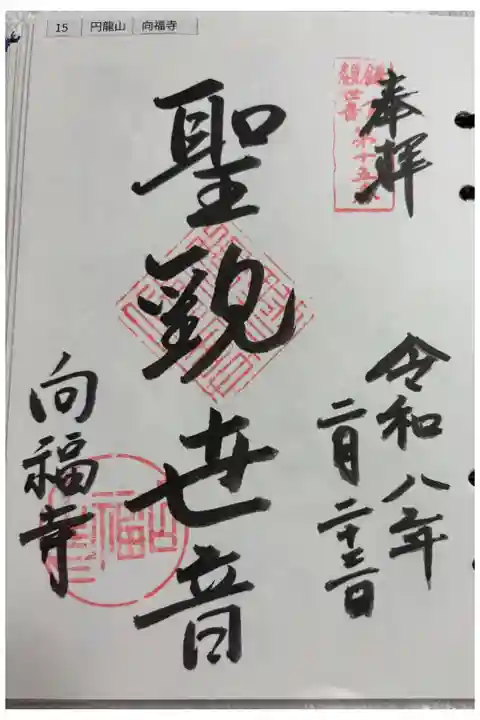 15 円龍山 向福寺
奉拝
第十五番
令和八年
二月二十二日
聖観世音
向福寺